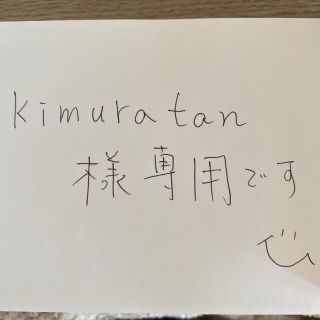 kimuratan
様専用です